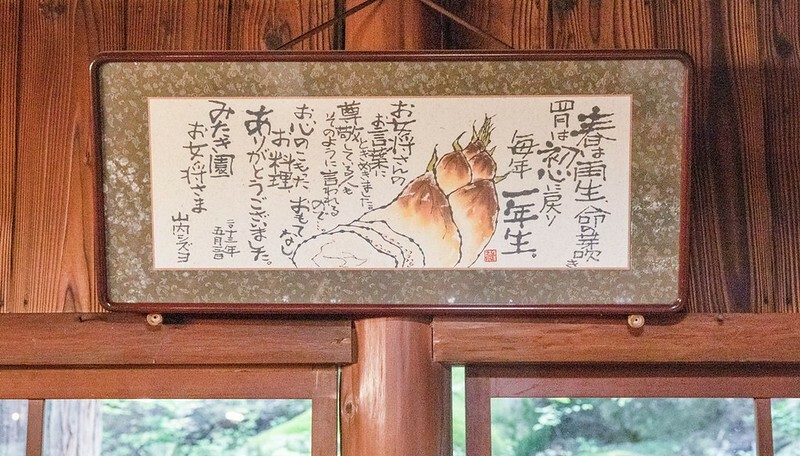 春は再生、命の芽吹き
四月は初心に戻り
毎年 一年生。
お女将さんの
お言葉に
ときめきました。
尊敬している人も
そのように言われる
ので…
お心のこもった おもてなし
お料理
ありがとうございました。
みたき園
お女将さま
二十三年
五月三日
山内シズヨ